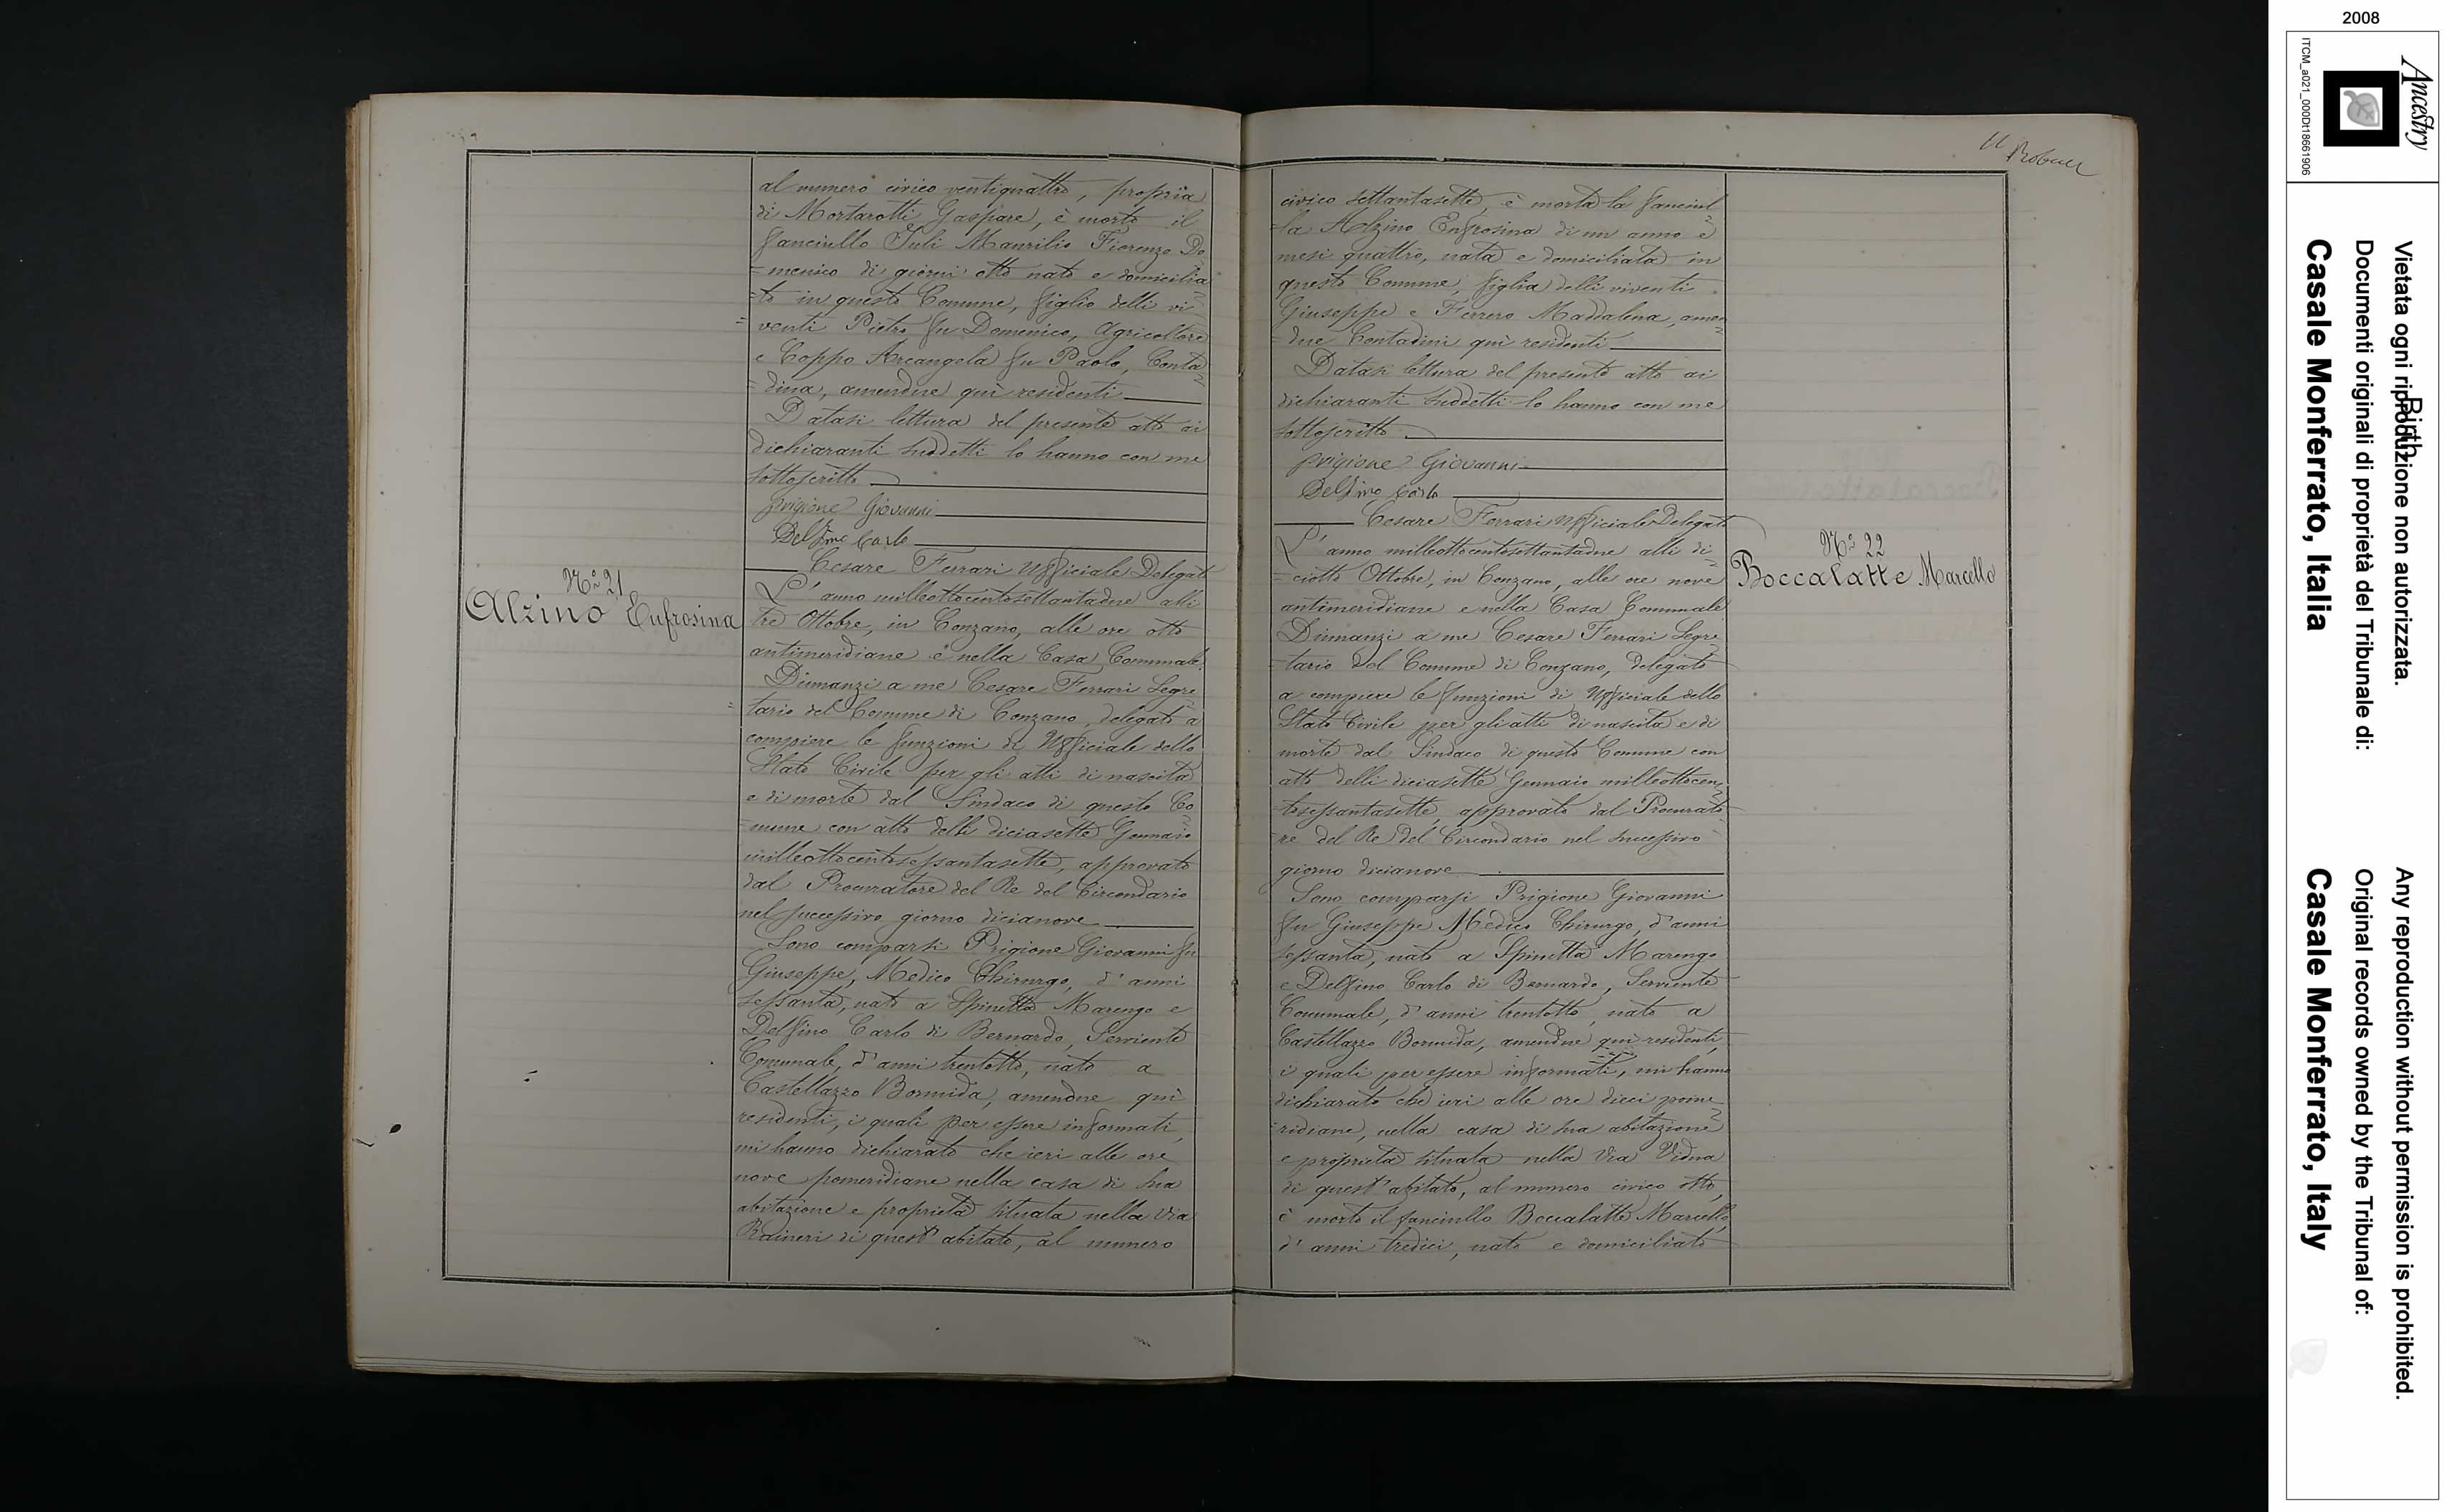 al numero civico ventiquattro, propria
di Mortarotti Gaspare, è morto il
fanciullo Iuli Maurilio Fiorenzo Do
=menico di giorni otto nato e domicilia
=to in questo Comune, figlio delli vi
=venti Pietro fu Domenico, Agricoltore
e Coppo Arcangela fu Paolo, Conta
=dina, amendue quì residenti
Datasi lettura del presente atto ai
dichiaranti suddetti lo hanno con me
sottoscritto
Prigione Giovanni
Delfino Carlo
Cesare Ferrari Ufficiale Delegato
N.° 21
Alzino Eufrosina
L'anno milleottocentosettantadue alli
tre Ottobre, in Conzano, alle ore otto
antimeridiane e nella Casa Comunale.
Dinnanzi a me Cesare Ferrari Segre
=tario del Comune di Conzano, delegato a
compiere le funzioni di Ufficiale dello
Stato Civile per gli atti di nascita
e di morte dal Sindaco di questo Co
=mune con atto delli diciasette Gennaio
milleottocentosessantasette, approvato
dal Procuratore del Re del Circondario
nel successivo giorno dicianove
Sono comparsi Prigione Giovanni fu
Giuseppe, Medico Chirurgo, d'anni
sessanta, nato a Spinetta Marengo e
Delfino Carlo di Bernardo, Serviente
Comunale, d'anni trentotto, nato a
Castellazzo Bormida, amendue quì
residenti, i quali per essere informati,
mi hanno dichiarato che ieri alle ore
nove pomeridiane nella casa di sua
abitazione e proprietà situata nella Via
Raineri di quest'abitato, al numero
11
civico settantasette, è morta la fanciul
=la Alzino Eufrosina di un anno e
mesi quattro, nata e domiciliata in
questo Comune, figlia delli viventi
Giuseppe e Ferrero Maddalena, amen
=due Contadini quì residenti
Datasi lettura del presente atto ai
dichiaranti suddetti lo hanno con me
sottoscritto
Prigione Giovanni
Delfino Carlo
Cesare Ferrari Ufficiale Delegato
N.° 22
Boccalatte Marcello
L'anno milleottocentosettantadue alli di
=ciotto Ottobre, in Conzano, alle ore nove
antimeridiane e nella Casa Comunale
Dinnanzi a me Cesare Ferrari Segre
=tario del Comune di Conzano, delegato
a compiere le funzioni di Ufficiale dello
Stato Civile per gli atti di nascita e di
morte dal Sindaco di questo Comune con
atto delli diciasette Gennaio milleottocen
=tosessantasette, approvato dal Procurato
=re del Re del Circondario nel successivo
giorno dicianove
Sono comparsi Prigione Giovanni
fu Giuseppe Medico Chirurgo, d'anni
sessanta, nato a Spinetta Marengo
e Delfino Carlo di Bernardo, Serviente
Comunale, d'anni trentotto, nato a
Castellazzo Bormida, amendue quì residenti,
i quali per essere informati, mi hanno
dichiarato che ieri alle ore dieci pome
=ridiane, nella casa di sua abitazione
e proprietà situata nella Via Vidua
di quest'abitato, al numero civico otto,
è morto il fanciullo Boccalatte Marcello,
d'anni tredici, nato e domiciliato
2008
Ancestry
ITCM_a021_000Dt18661906
Birth
Vietata ogni riproduzione non autorizzata.
Documenti originali di proprietà del Tribunale di:
Casale Monferrato, Italia
Any reproduction without permission is prohibited.
Original records owned by the Tribunal of:
Casale Monferrato, Italy